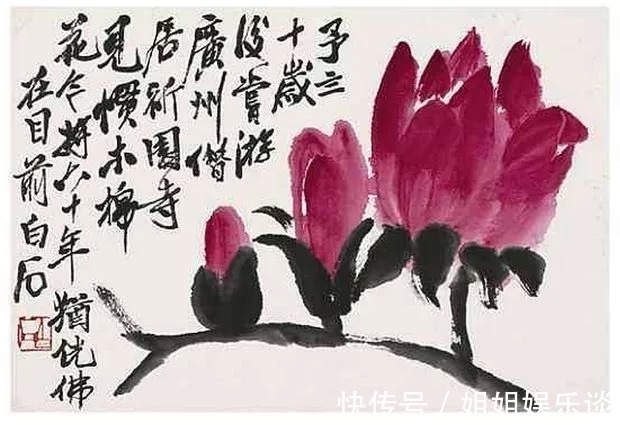 予三
十歲
後嘗游
廣州僭
居祈園寺
見慣木棉
花今將六十年猶恍佛
在目前白石
快传号 / 姐姐娱乐谈